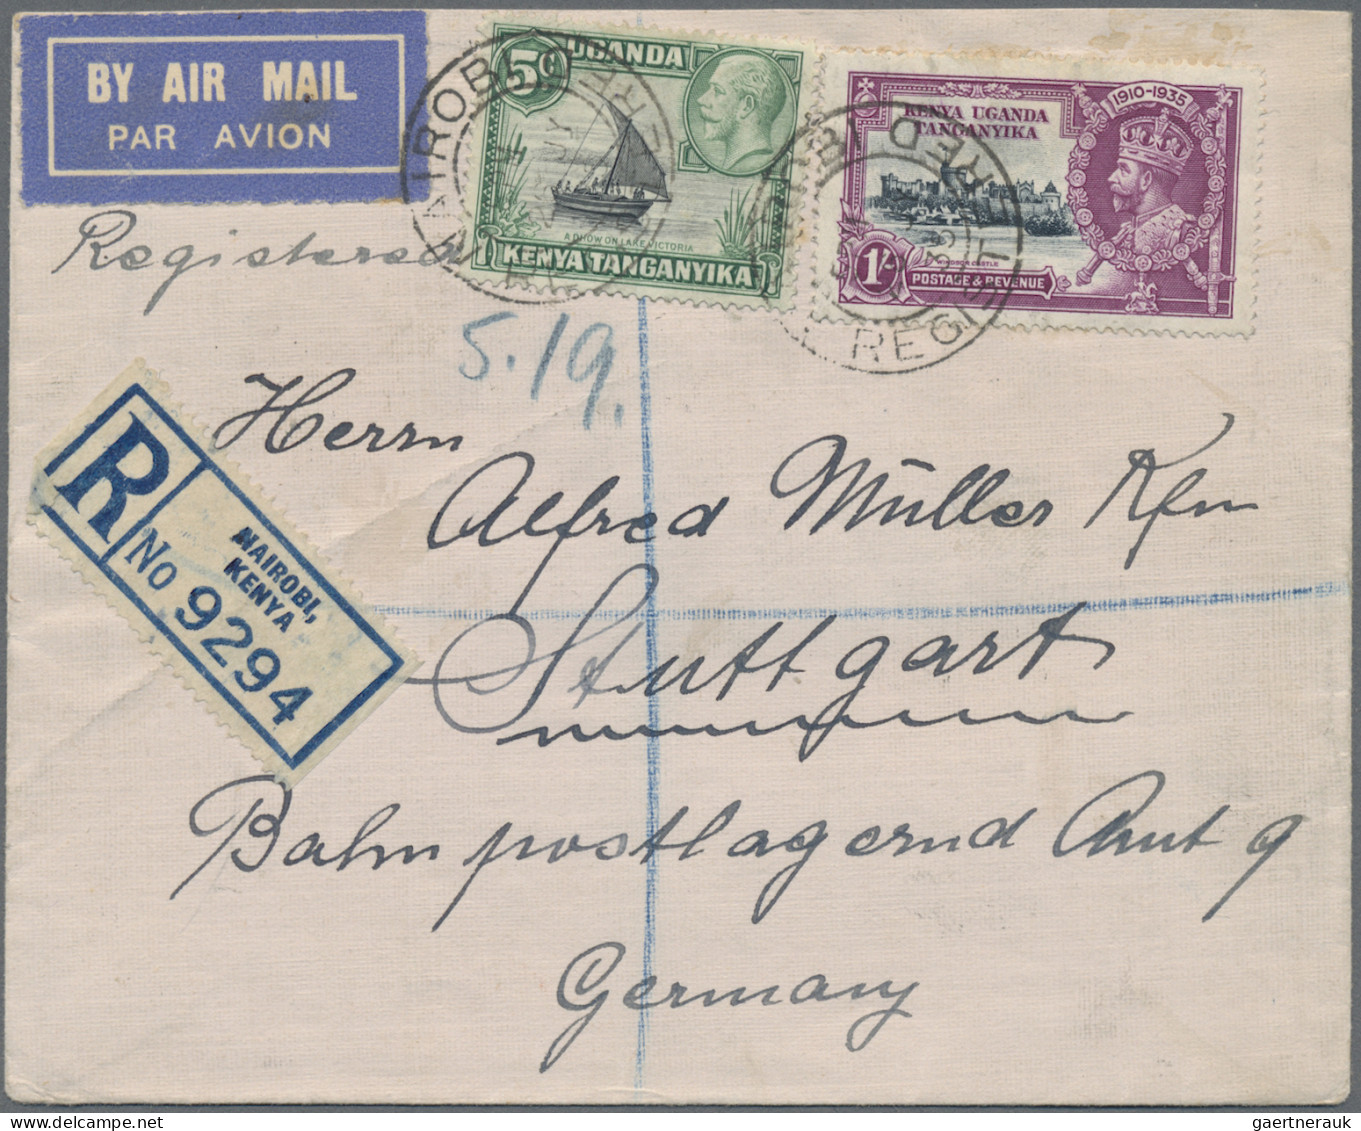 BY AIR MAIL
PAR AVION
5c UGANDA
A DHOW ON LAKE VICTORIA
KENYA TANGANYIKA
KENYA UGANDA
TANGANYIKA
1910-1935
WINDSOR CASTLE
1/- POSTAGE & REVENUE
NAIROBI
REGISTERED
REGISTERED
Registered
5.19.
Herrn
Alfred Müller Kfm
R
No 9294
NAIROBI,
KENYA
Stuttgart
Bahnpostlagernd Amt 9
Germany
gaertnerauk